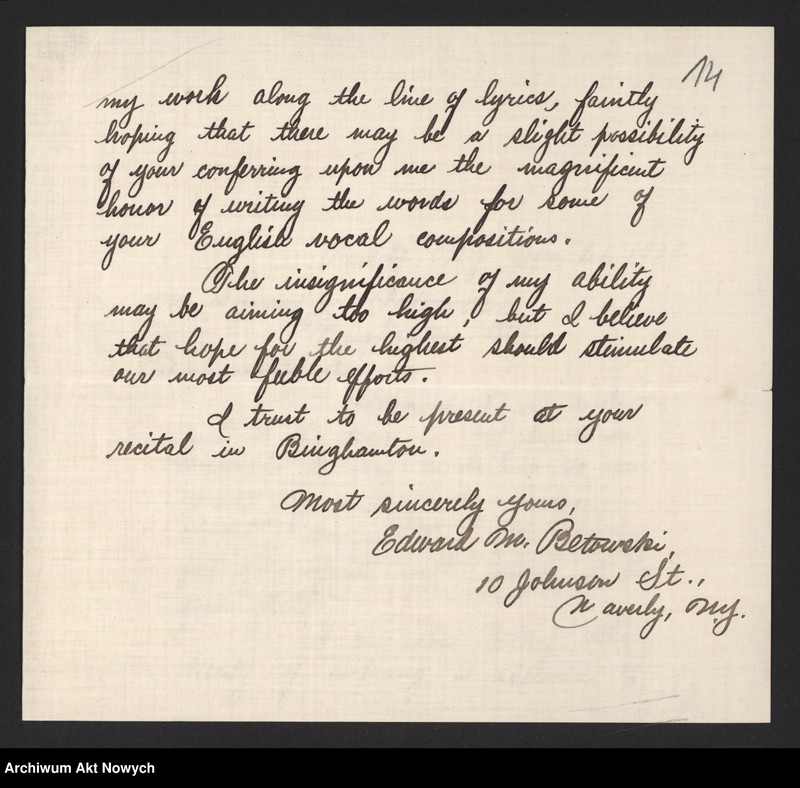 14
my work along the line of lyrics, faintly
hoping that there may be a slight possibility
of your conferring upon me the magnificent
honor of writing the words for some of
your English vocal compositions.
The insignificance of my ability
may be aiming too high, but I believe
that hope for the highest should stimulate
our most feeble efforts.
I trust to be present at your
recital in Binghamton.
Most sincerely yours,
Edward M. Betowski,
10 Johnson St.,
Waverly, N.Y.
Archiwum Akt Nowych